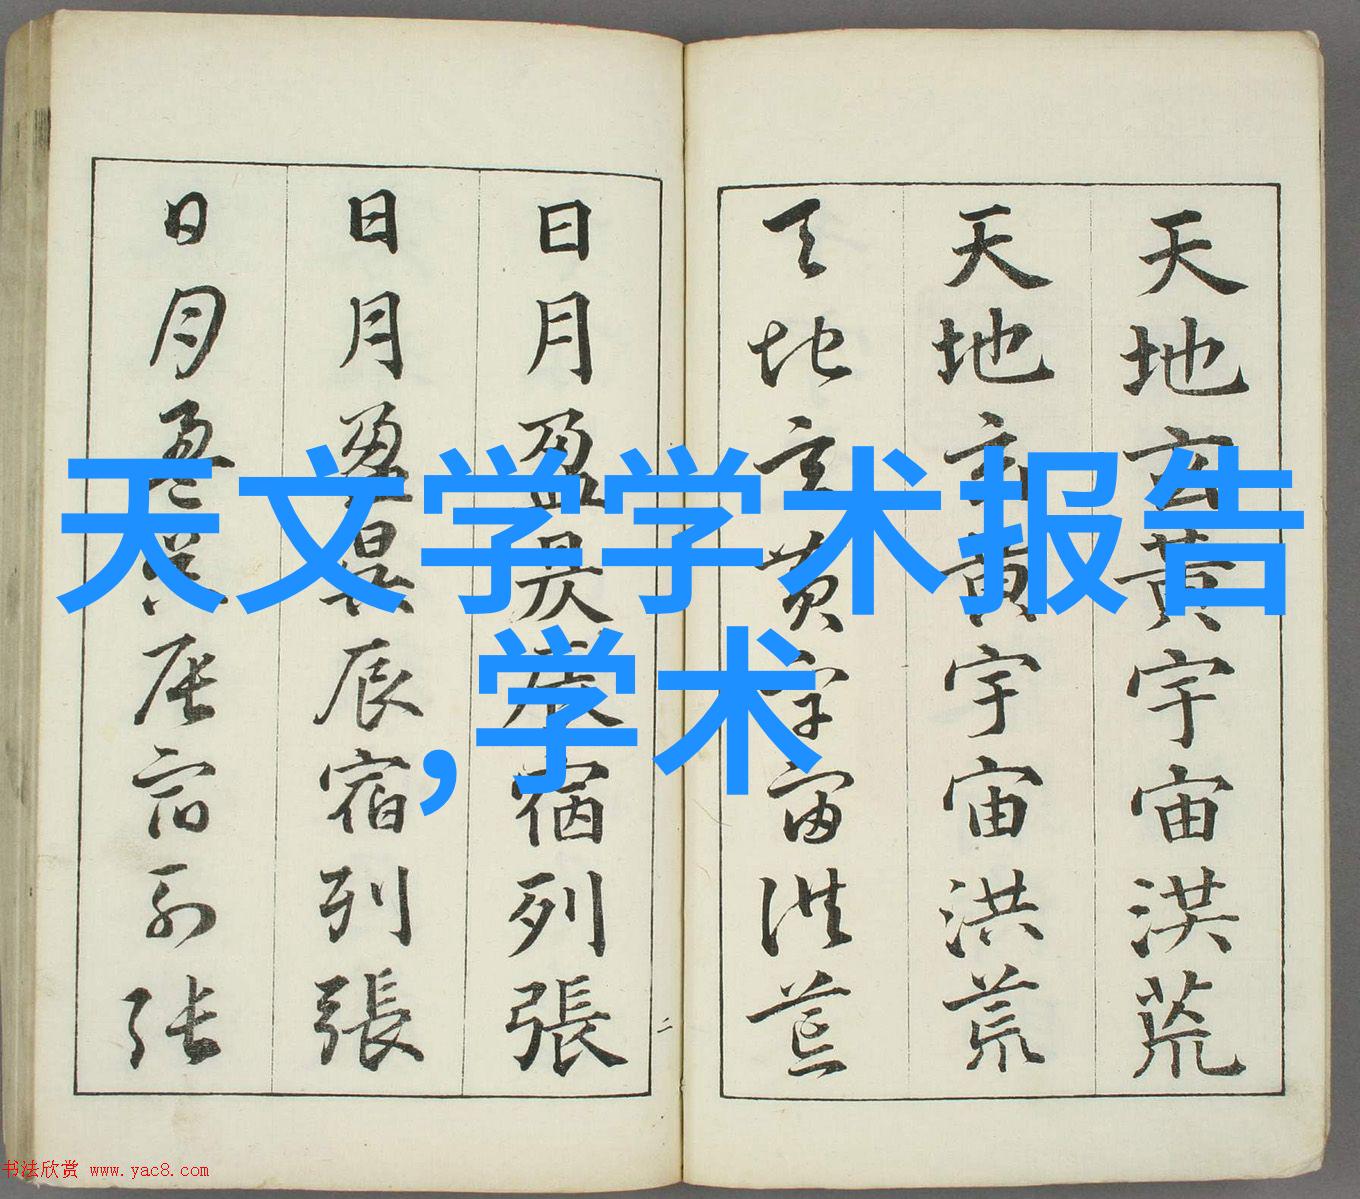 天地玄黃宇宙洪荒
天地玄黃宇宙洪荒
天地玄黃宇宙洪荒
日月盈昃辰宿列張
日月盈昃辰宿列張
日月盈昃辰宿列張
二
天文学学术报告
,学术
书法欣赏 www.yac8.com